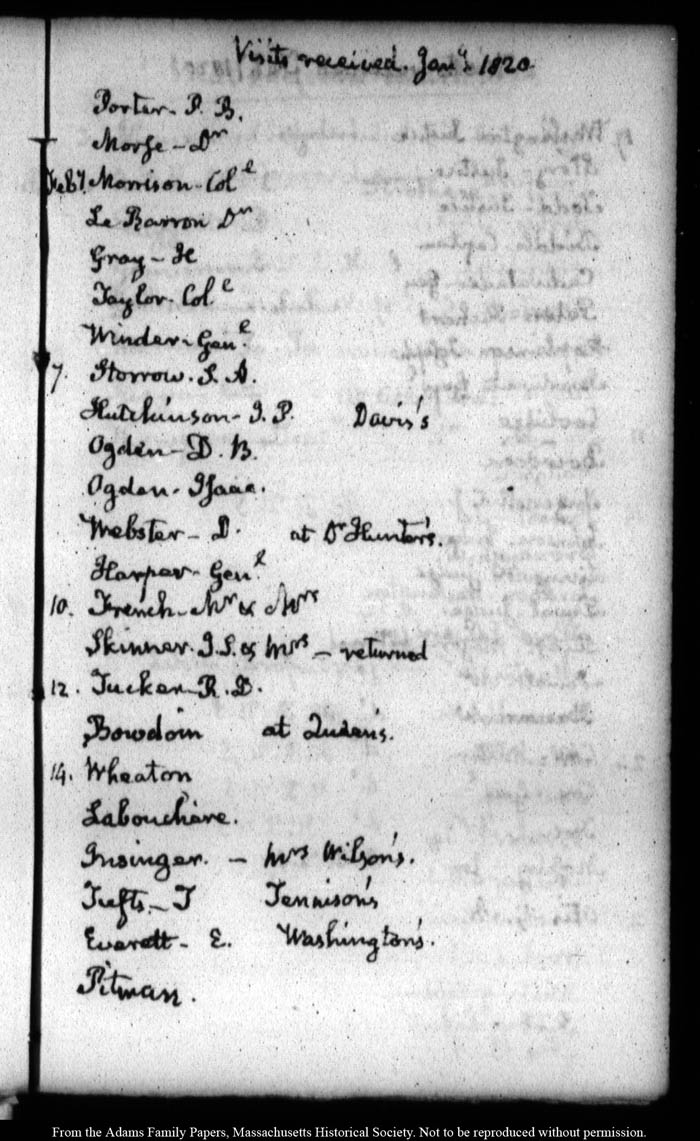 Visits received. Jany. 1820.
Porter. P. B.
Morse - Dr
Feb 1. Morrison. Cole
Le Barron Dr
Gray - H
Taylor. Col.
Winder. Genl.
7. Storrow. S. A.
Hutchinson. I. P. Davis's
Ogden - D. B.
Ogden. Isaac.
Webster - D. at Dr Hunter's.
Harper. Genl
10. French. Mr & Mrs
Skinner. J. S. & Mrs - returned
12. Tucker. R. D.
Bowdoin at Queen's.
14. Wheaton
Labouchère.
Insinger. - Mrs Wilson's.
Tufts - J Tennison's
Everett - E. Washington's.
Pitman.
From the Adams Family Papers, Massachusetts Historical Society. Not to be reproduced without permission.